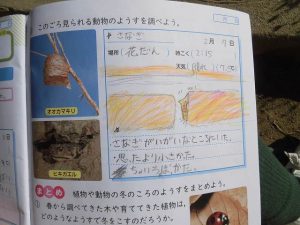 このごろ見られる動物のようすを調べよう。
さなぎ
2月9日
場所 花だん 時こく 2:15
天気 晴れ
オオカマキリ
ヒキガエル
さなぎがいがいなところにいた。
思ったより小さかった。
ちゃいろぽかった。
まとめ 植物や動物の冬のころのようすをまとめよう。
① 春から調べてきた木や育ててきた植物は、
どのようなようすで冬をこすのだろうか。